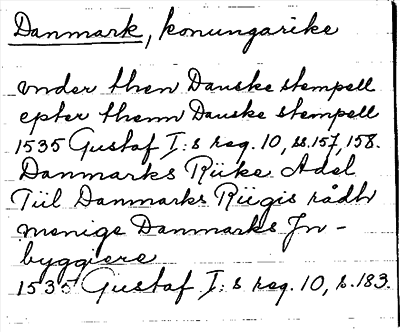 Danmark, konungarike
vnder then Danske stempell
epter thenn Danske stempell
1535 Gustaf I:s reg. 10, ss. 157, 158.
Danmarks Riike Adel
Tiil Danmarks Riigis rådh
menige Danmarks In-
byggiere
1535 Gustaf I:s reg. 10, s. 183.